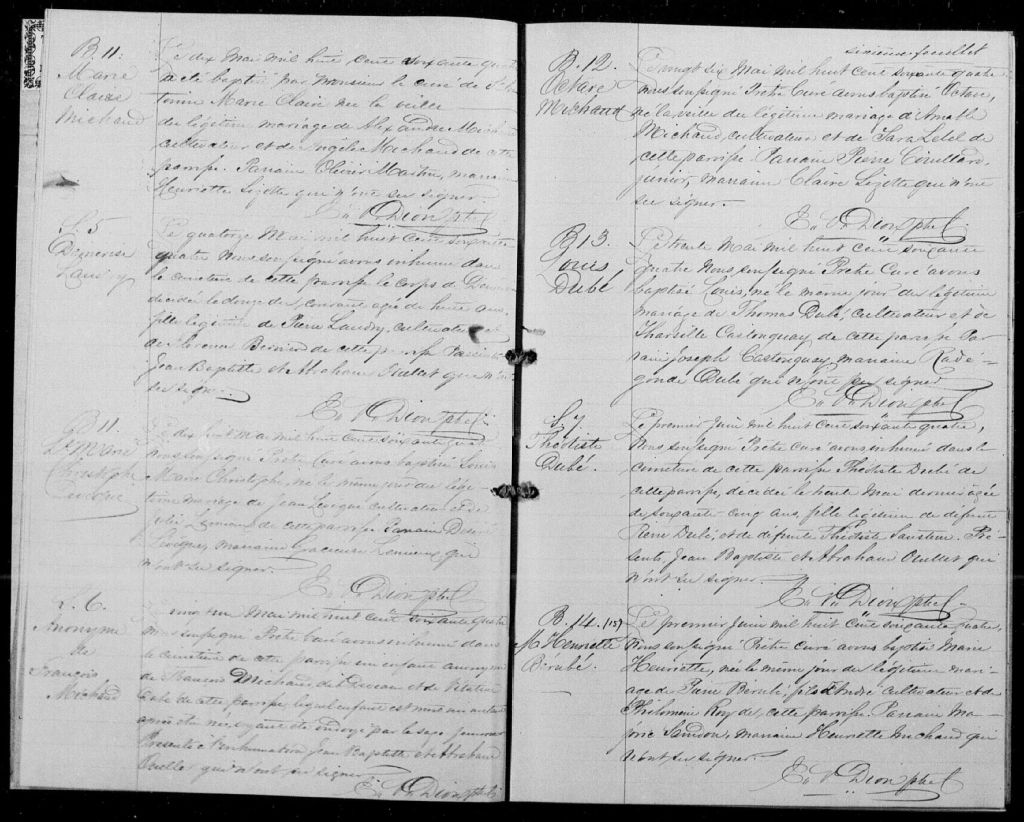 B 11.
Marie
Claire
Michaud
Le dix Mai mil huit cent soixante quatre
a été baptisé par monsieur le curé de St
Marie Claire née la veille
du légitime mariage de Alexandre
cultivateur et de Angele Michaud de cette
paroisse. Parrain Olivier Martin, marraine
Henriette Lizotte qui n'ont su signer.
Ls. V. Dion ptre C.
S. 5
Landry
Le quatorze Mai mil huit cent soixante
quatre Nous soussigné avons inhumé dans
le cimetière de cette paroisse le corps de
décédée le douze du courant agée de huit ans,
fille légitime de Pierre Landry, cultivateur et
de Bernier de cette paroisse
Jean Baptiste et Abraham Ouellet qui n'ont
su signer.
Ls. V. Dion ptre C.
B 11.
Ls Marie
Christophe
Levêque
Le dix huit Mai mil huit cent soixante quatre
nous soussigné Prêtre Curé avons baptisé Louis
Marie Christophe, né le même jour du légi-
time mariage de Jean Levêque cultivateur et de
de cette paroisse Parrain
Levêque, marraine Gracieuse qui
n'ont su signer.
Ls. V. Dion ptre C.
S. 6.
Anonyme
de
François
Michaud
Mai mil huit cent soixante quatre
nous soussigné Prêtre Curé avons inhumé dans
le cimetière de cette paroisse un enfant anonyme
de François Michaud, et de
Dubé de cette paroisse, lequel enfant est mort
après être né ayant été ondoyé par la sage femme
Présents à l'inhumation Jean Baptiste et Abraham
Ouellet qui n'ont su signer
Ls. V. Dion ptre C.
sixieme feuillet
B. 12.
Octave
Michaud
Le vingt six Mai mil huit cent soixante quatre
nous soussigné Prêtre Curé avons baptisé Octave,
né la veille du légitime mariage d'Amable
Michaud, cultivateur et de Sara Lebel de
cette paroisse. Parrain Pierre
junior, marraine Claire Lizotte qui n'ont
su signer.
Ls. V. Dion ptre C.
B 13.
Louis
Dubé
Le trente Mai mil huit cent soixante
quatre Nous soussigné Prêtre Curé avons
baptisé Louis, né le même jour du légitime
mariage de Thomas Dubé, cultivateur et de
Tharsille Castonguay, de cette paroisse Par-
rain Joseph Castonguay, marraine Radé-
gonde Dubé qui n'ont pu signer
Ls. V. Dion ptre C.
S. 7.
Théotiste
Dubé.
Le premier Juin mil huit cent soixante quatre,
Nous soussigné Prêtre Curé avons inhumé dans le
cimetière de cette paroisse Théotiste Dubé de
cette paroisse, décédée le trente Mai dernier agée
de soixante cinq ans, fille légitime de défunt
Pierre Dubé, et de défunte Théotiste. Pré-
sents, Jean Baptiste et Abraham Ouellet qui
n'ont su signer.
Ls. V. Dion ptre C.
B. 14. (15)
M. Henriette
Bérubé.
Le premier Juin mil huit cent soixante quatre,
Nous soussigné Prêtre Curé avons baptisé Marie
Henriette, née le même jour du légitime mari-
age de Pierre Bérubé, fils d'André cultivateur et de
Philomène Roy de cette paroisse. Parrain
marraine Henriette Michaud qui
n'ont su signer.
Ls. V. Dion ptre C.